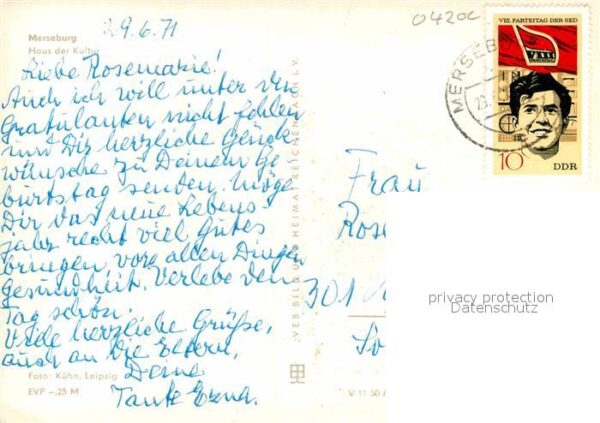 29.6.71
0420c
Merseburg
Haus der Kultur
Liebe Rosemarie!
Auch ich will unter den
Gratulanten nicht fehlen
und Dir herzliche Glück-
wünsche zu Deinem Ge-
burtstag senden. Möge
Dir das neue Lebens-
jahr recht viel Gutes
bringen, vor allen Dingen
Gesundheit. Verlebe den
Tag schön.
Viele herzliche Grüße,
auch an die Eltern,
Deine
Tante Erna.
Foto: Kühn, Leipzig
EVP -,25 M
VEB BILD UND HEIMAT REICHENBACH i. V.
V 11 50
VIII. PARTEITAG DER SED
VIII
PARTEITAG
10
DDR
MERSEB
Frau
Rose
301
privacy protection
Datenschutz